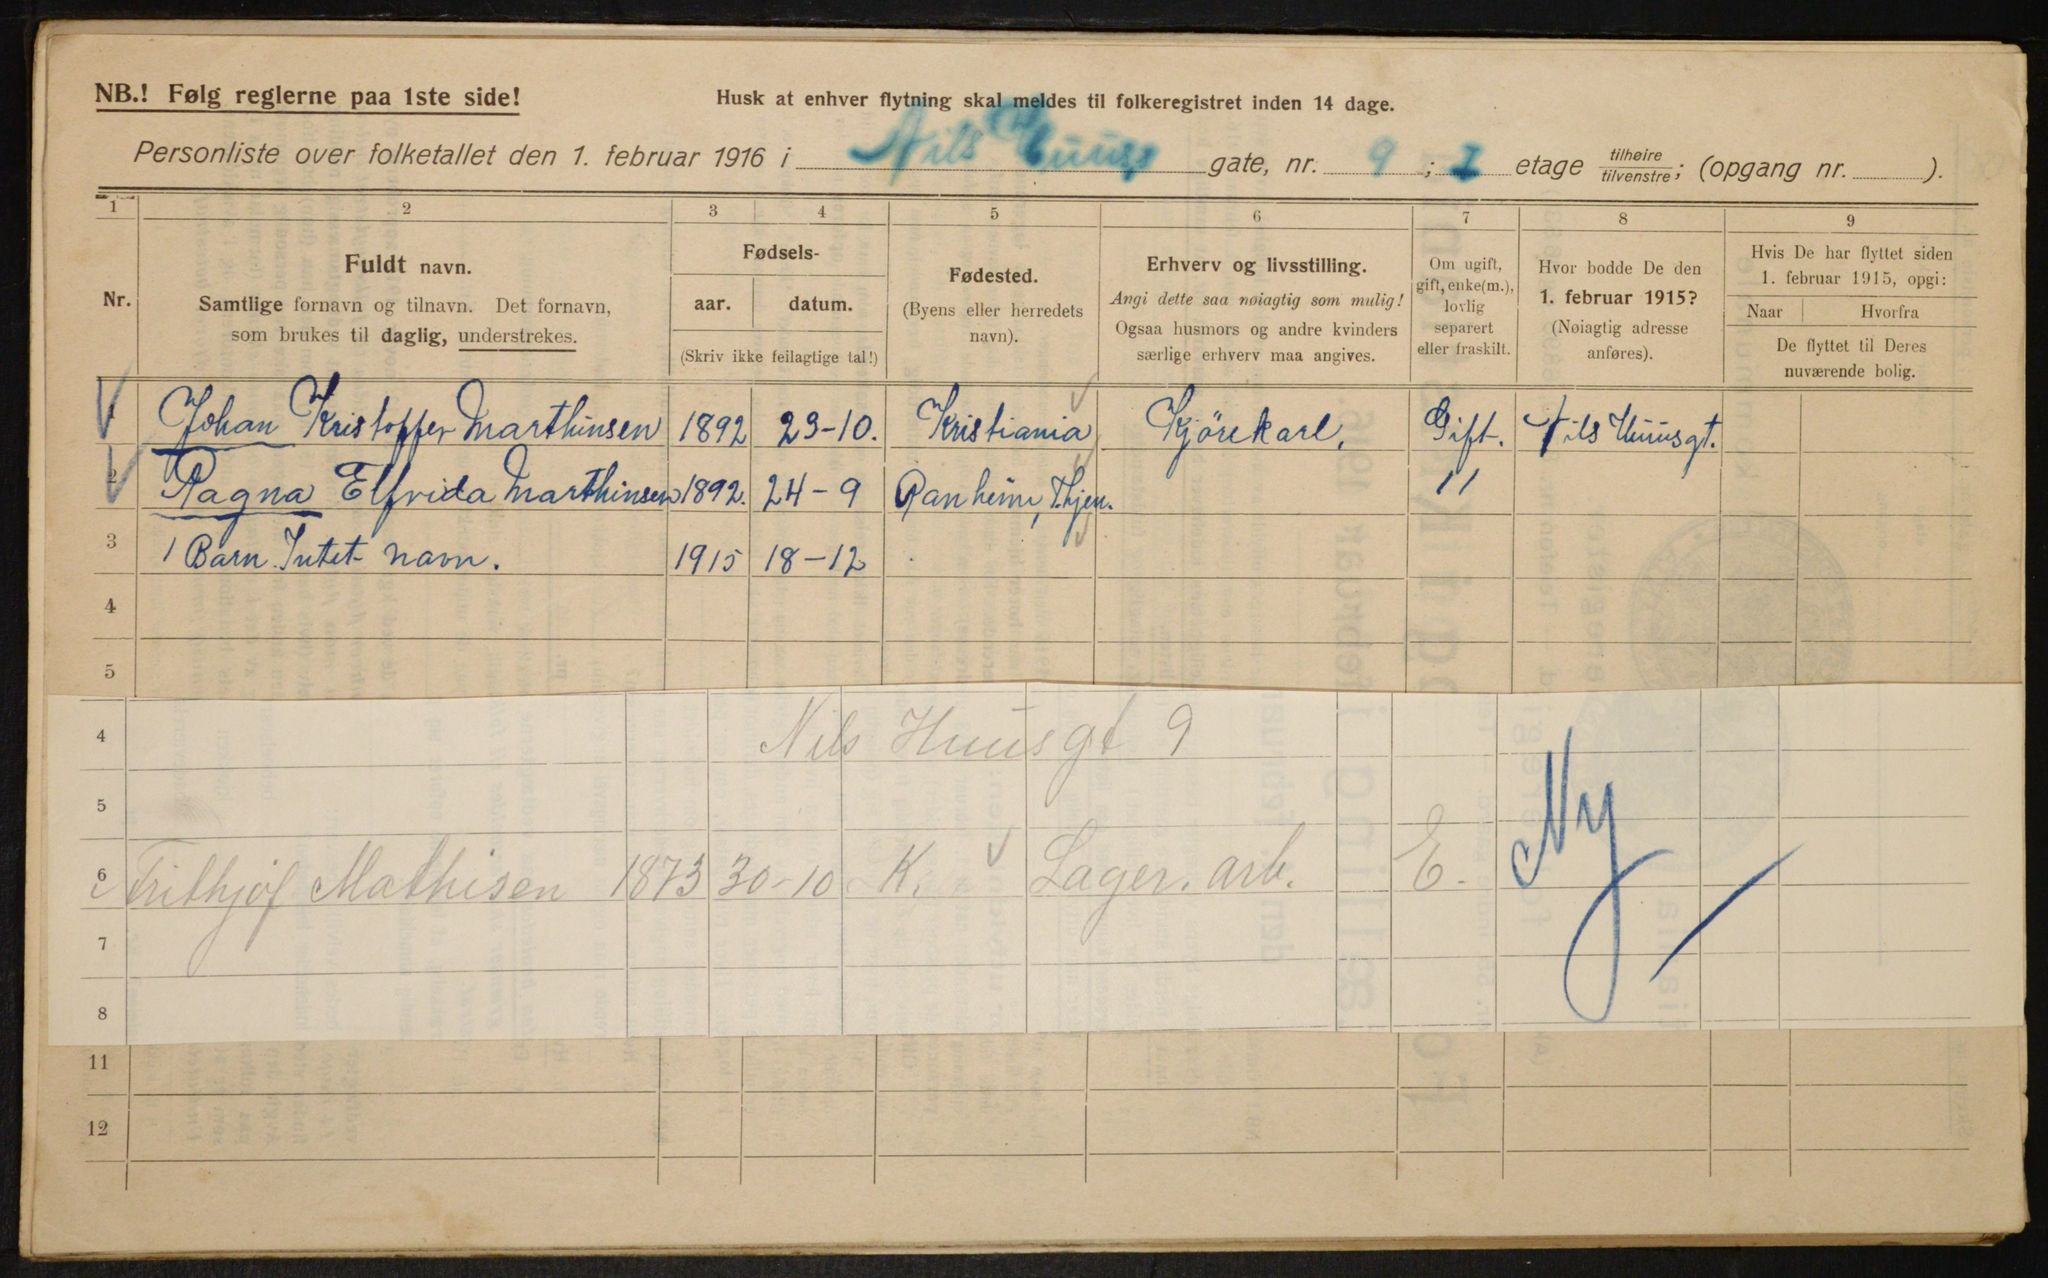 NB.! Følg reglerne paa 1ste side!
Husk at enhver flytning skal meldes til folkeregistret inden 14 dage.
Personliste over folketallet den 1. februar 1916 i Nils Huus gate, nr. 9; I etage tilhøire tilvenstre; (opgang nr. ).
1 2 3 4 5 6 7 8 9
Nr.
Fuldt navn.
Samtlige fornavn og tilnavn. Det fornavn,
som brukes til daglig, understrekes.
Fødsels-
aar. datum.
(Skriv ikke feilagtige tal!)
Fødested.
(Byens eller herredets
navn).
Erhverv og livsstilling.
Angi dette saa nøiagtig som mulig!
Ogsaa husmors og andre kvinders
særlige erhverv maa angives.
Om ugift,
gift, enke(m.),
lovlig
separert
eller fraskilt.
Hvor bodde De den
1. februar 1915?
(Nøiagtig adresse
anføres).
Hvis De har flyttet siden
1. februar 1915, opgi:
Naar Hvorfra
De flyttet til Deres
nuværende bolig.
1 Johan Kristoffer Marthinsen 1892 23-10. Kristiania Kjörekarl. Gift. Nils Huusgt.
2 Ragna Elfrida Marthinsen 1892. 24-9 Ranheim, Thjem. 11
3 1 Barn. Intet navn. 1915 18-12
4
5
4 Nils Huusgt 9
5
6 Frithjof Mathisen 1873 30-10 K. Lager. arb. E. Ny
7
8
11
12